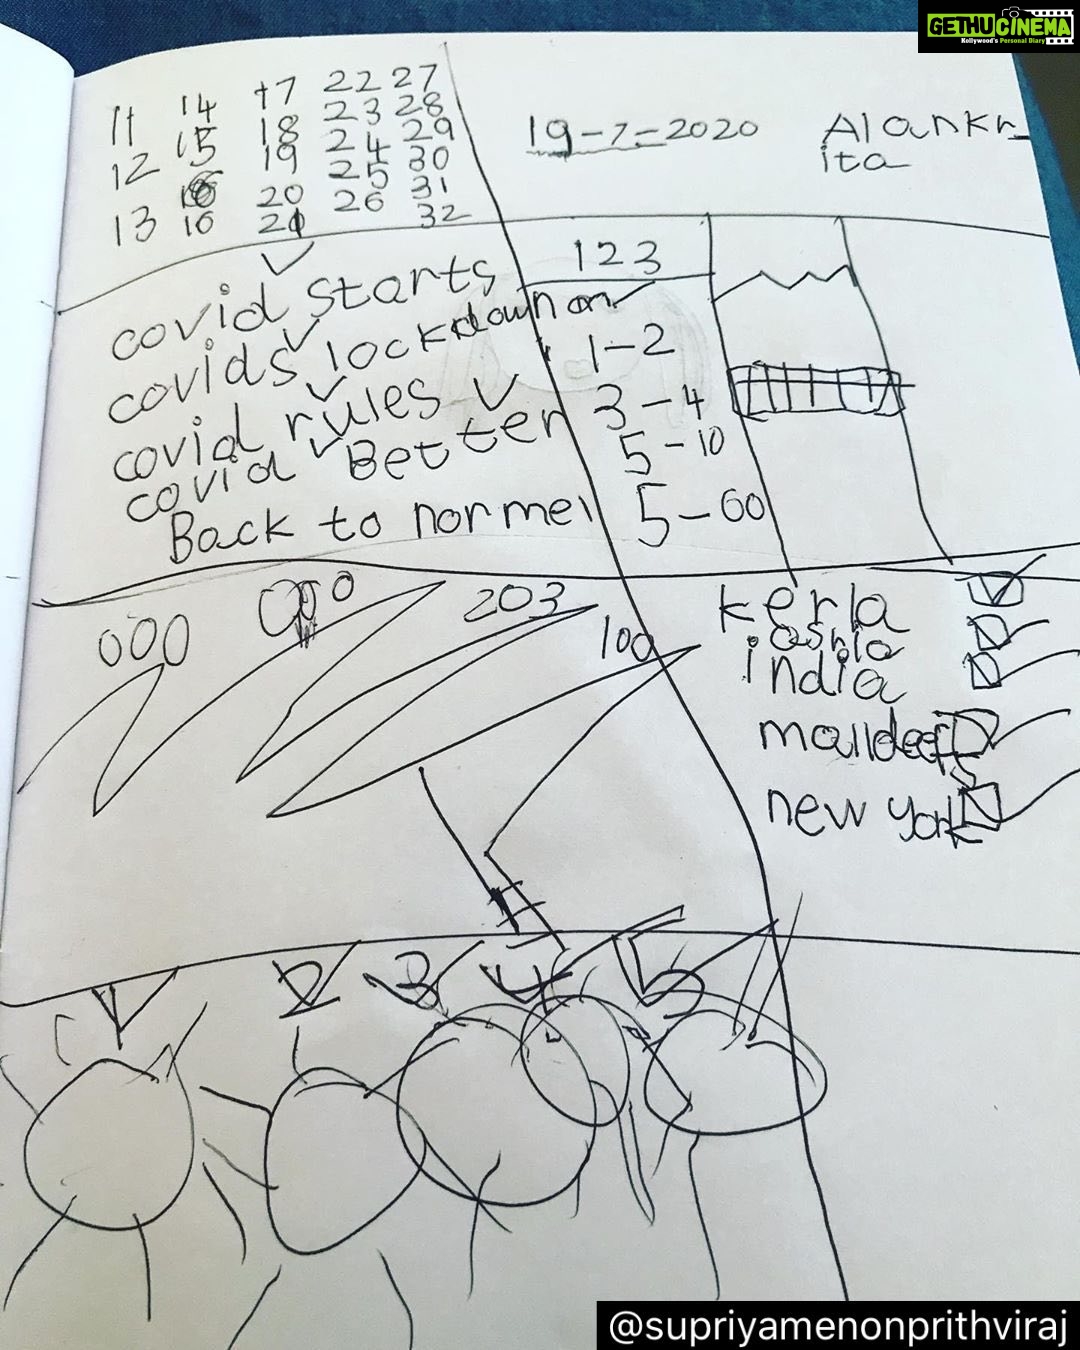 GETHU CINEMA
Kollywood's Personal Diary
11 14 17 22 27
12 15 18 23 28
13 16 19 24 29
20 25 30
21 26 31
32
19-7-2020
Alankr
ita
covid starts
covids lockdown on
covid rules
covid Better
Back to normel
123
1-2
3-4
5-10
5-60
000
203
100
kerla
india
new york
1 2 3 4 5
@supriyamenonprithviraj